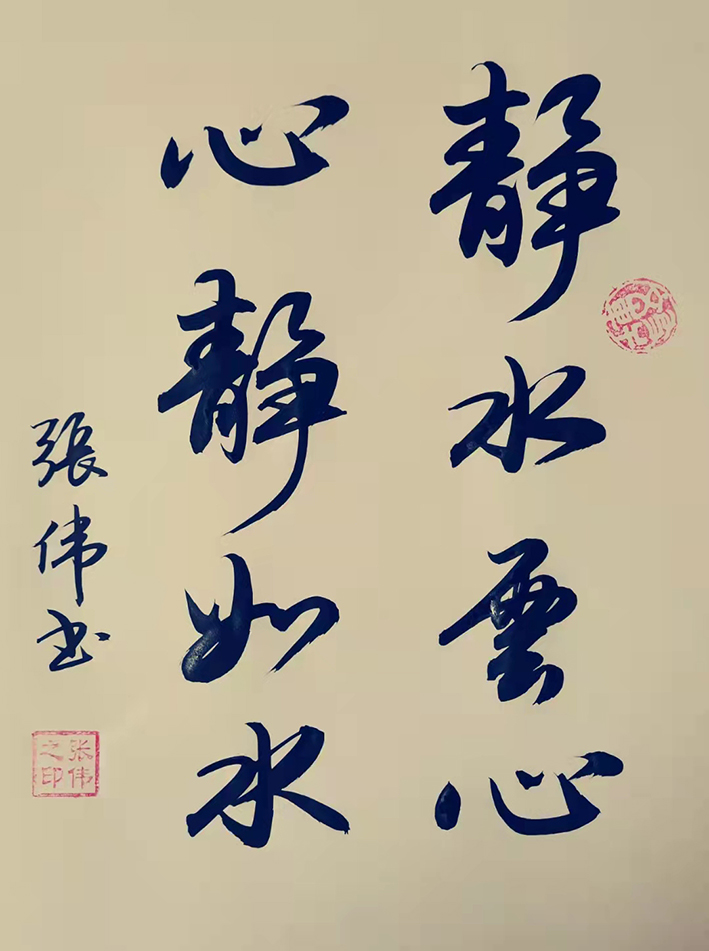 靜水雲心
心靜如水
張伟书
张伟之印